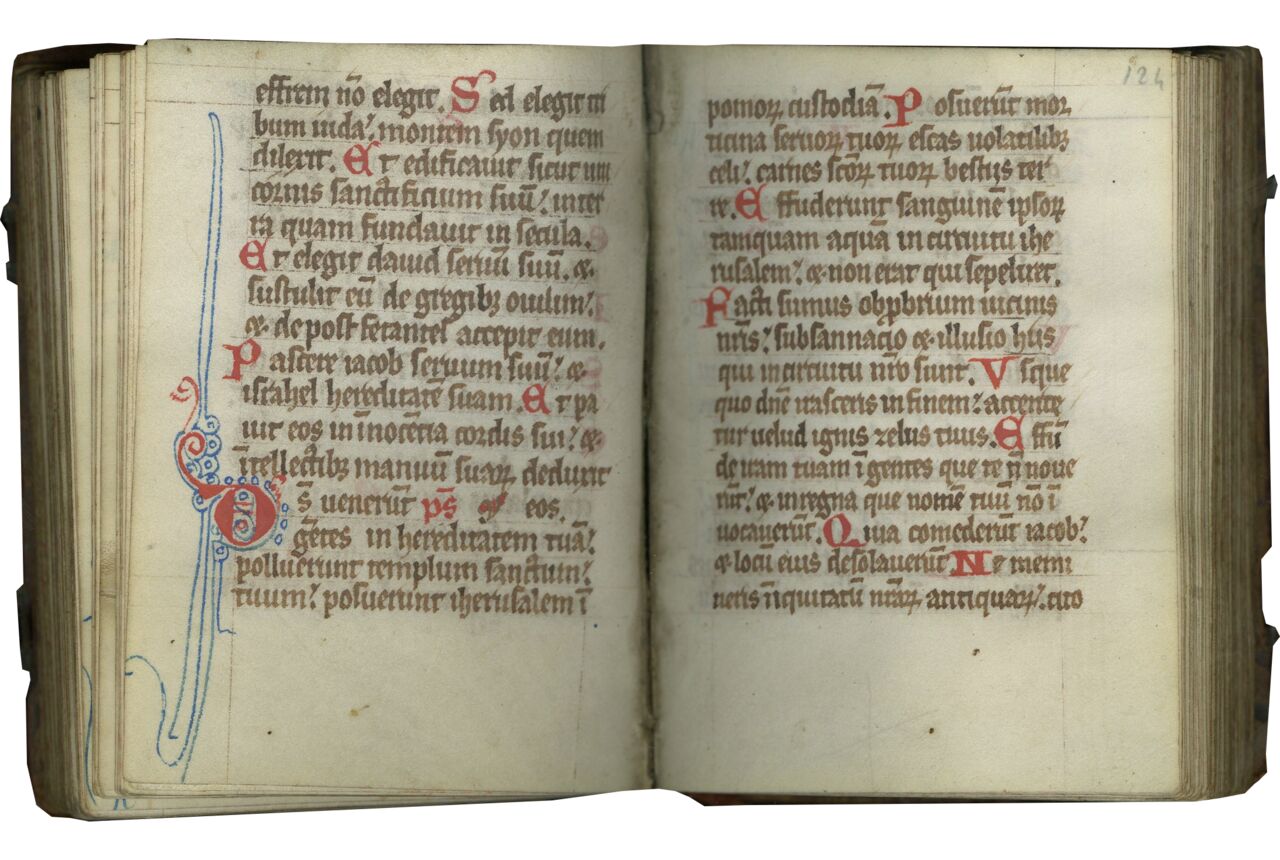 effrem nō elegit. Sed elegit tri
bum iuda: montem syon quem
dilexit. Et edificauit sicut uni
cornis sanctificium suū: in ter
ra quam fundauit in secula.
Et elegit dauid seruū suū. &
sustulit eū de gregibꝫ ouium:
& de post fetantes accepit eum.
Pascere iacob seruum suū: &
israhel hereditatē suam. Et pa
uit eos in inocētia cordis sui: &
ī tellectibꝫ manuū suaꝝ deduxit
Ds̄ uenerūt ps̄ eos.
gētes in hereditatem tuā:
polluerunt templum sanctum:
tuum: posuerunt iherusalem ī
124
pomoꝝ custodiā. Posuerūt mor
ticina seruoꝝ tuoꝝ escas uolatilibꝫ
celi: carnes scōꝝ tuoꝝ bestijs ter
re. Effuderunt sanguinē ipsoꝝ
tamquam aquā in circuitu ihe
rusalem: & non erat qui sepeliret.
Facti sumus obprbrium uicinis
nr̄is: subsannacio & illusio hiis
qui in circuitu nr̄o sunt. Vsque
quo dn̄e irasceris in finem: accende
tur uelud ignis zelus tuus. Effū
de iram tuam ī gentes que te n̄ noue
rūt: & in regna que nomē tuū nō ī
uocauerūt. Quia comederūt iacob:
& locū eius desolauerūt Ne memi
neris īiquitatū nr̄aꝝ antiquaꝝ: cito